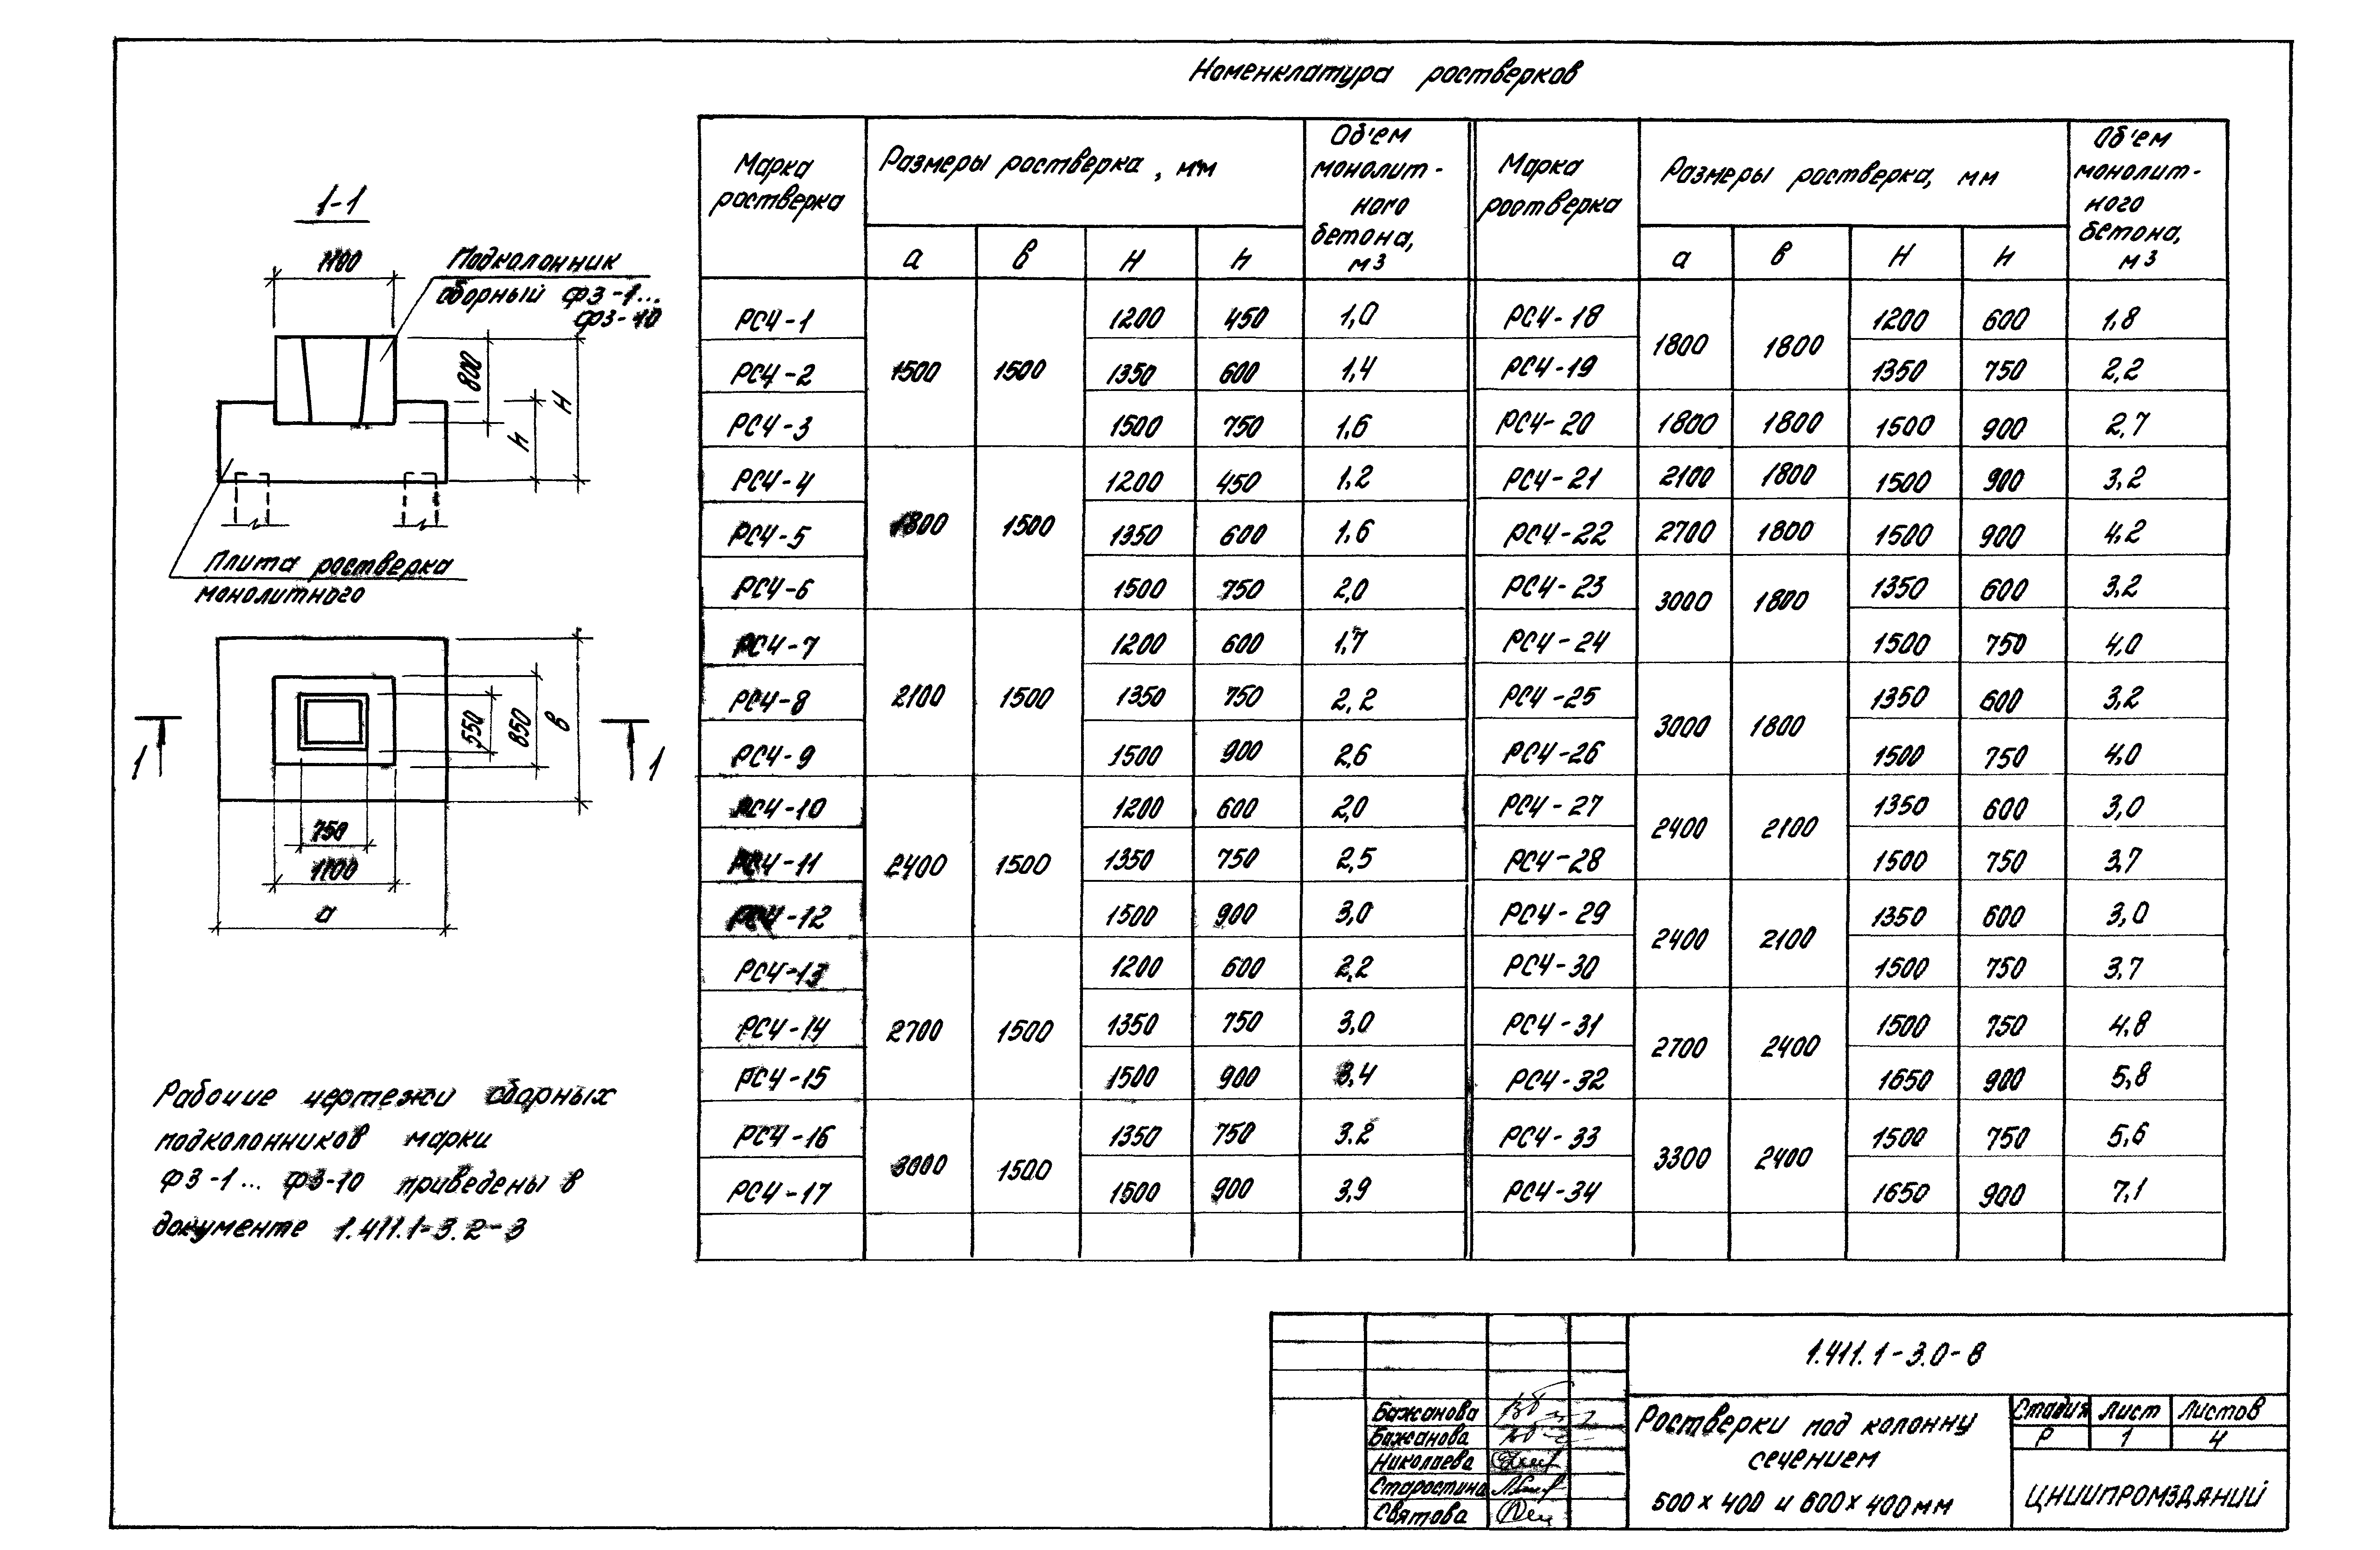 Номенклатура ростверков
1-1
1100
Подколонник
сборный Ф3-1...
Ф3-10
800
h
H
Плита ростверка
монолитного
550
850
в
1
1
750
1100
а
Рабочие чертежи сборных
подколонников марки
Ф3-1... Ф3-10 приведены в
документе 1.411.1-3.2-3
Марка ростверка | Размеры ростверка, мм | Об'ем монолит-ного бетона, м3 | Марка ростверка | Размеры ростверка, мм | Об'ем монолит-ного бетона, м3
а | в | H | h | а | в | H | h
РС4-1 | 1500 | 1500 | 1200 | 450 | 1,0 | РС4-18 | 1800 | 1800 | 1200 | 600 | 1,8
РС4-2 | 1350 | 600 | 1,4 | РС4-19 | 1350 | 750 | 2,2
РС4-3 | 1500 | 750 | 1,6 | РС4-20 | 1800 | 1800 | 1500 | 900 | 2,7
РС4-4 | 1800 | 1500 | 1200 | 450 | 1,2 | РС4-21 | 2100 | 1800 | 1500 | 900 | 3,2
РС4-5 | 1350 | 600 | 1,6 | РС4-22 | 2700 | 1800 | 1500 | 900 | 4,2
РС4-6 | 1500 | 750 | 2,0 | РС4-23 | 3000 | 1800 | 1350 | 600 | 3,2
РС4-7 | 2100 | 1500 | 1200 | 600 | 1,7 | РС4-24 | 1500 | 750 | 4,0
РС4-8 | 1350 | 750 | 2,2 | РС4-25 | 3000 | 1800 | 1350 | 600 | 3,2
РС4-9 | 1500 | 900 | 2,6 | РС4-26 | 1500 | 750 | 4,0
РС4-10 | 2400 | 1500 | 1200 | 600 | 2,0 | РС4-27 | 2400 | 2100 | 1350 | 600 | 3,0
РС4-11 | 1350 | 750 | 2,5 | РС4-28 | 1500 | 750 | 3,7
РС4-12 | 1500 | 900 | 3,0 | РС4-29 | 2400 | 2100 | 1350 | 600 | 3,0
РС4-13 | 2700 | 1500 | 1200 | 600 | 2,2 | РС4-30 | 1500 | 750 | 3,7
РС4-14 | 1350 | 750 | 3,0 | РС4-31 | 2700 | 2400 | 1500 | 750 | 4,8
РС4-15 | 1500 | 900 | 3,4 | РС4-32 | 1650 | 900 | 5,8
РС4-16 | 3000 | 1500 | 1350 | 750 | 3.2 | РС4-33 | 3300 | 2400 | 1500 | 750 | 5,6
РС4-17 | 1500 | 900 | 3,9 | РС4-34 | 1650 | 900 | 7,1
1.411.1-3.0-8
Бажанова
Бажанова
Николаева
Старостина
Святова
Ростверки под колонну
сечением
500×400 и 600×400мм
Стадия Лист Листов
Р 1 4
ЦНИИПРОМЗДАНИЙ